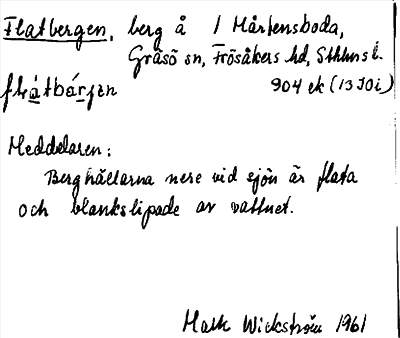 Flatbergen, berg å 1 Mårtensboda,
Gräsö sn, Frösåkers hd, Sthlms l.
904 ek (13 I 0 i)
Meddelaren:
Berghällarna nere vid sjön är flata
och blankslipade av vattnet.
Mark Wickström 1961